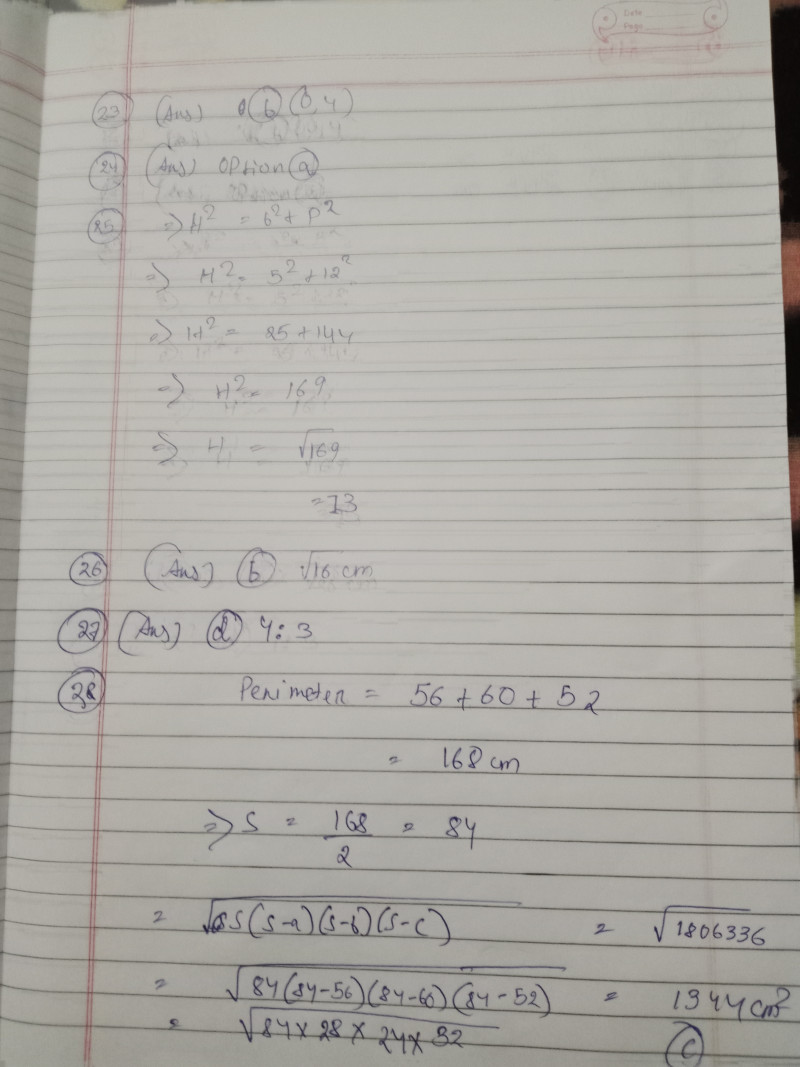 Date
Page
23 (Ans) b (0,4)
24 (Ans) Option a
25 => H² = b² + P²
=> H² = 5² + 12²
=> H² = 25 + 144
=> H² = 169
=> H = √169
= 13
26 (Ans) b √16 cm
27 (Ans) d 4:3
28 Perimeter = 56 + 60 + 52
= 168 cm
=> S = 168/2 = 84
= √S(S-a)(S-b)(S-c) = √1806336
= √84(84-56)(84-60)(84-52) = 1344 cm²
= √84×28×24×32 c